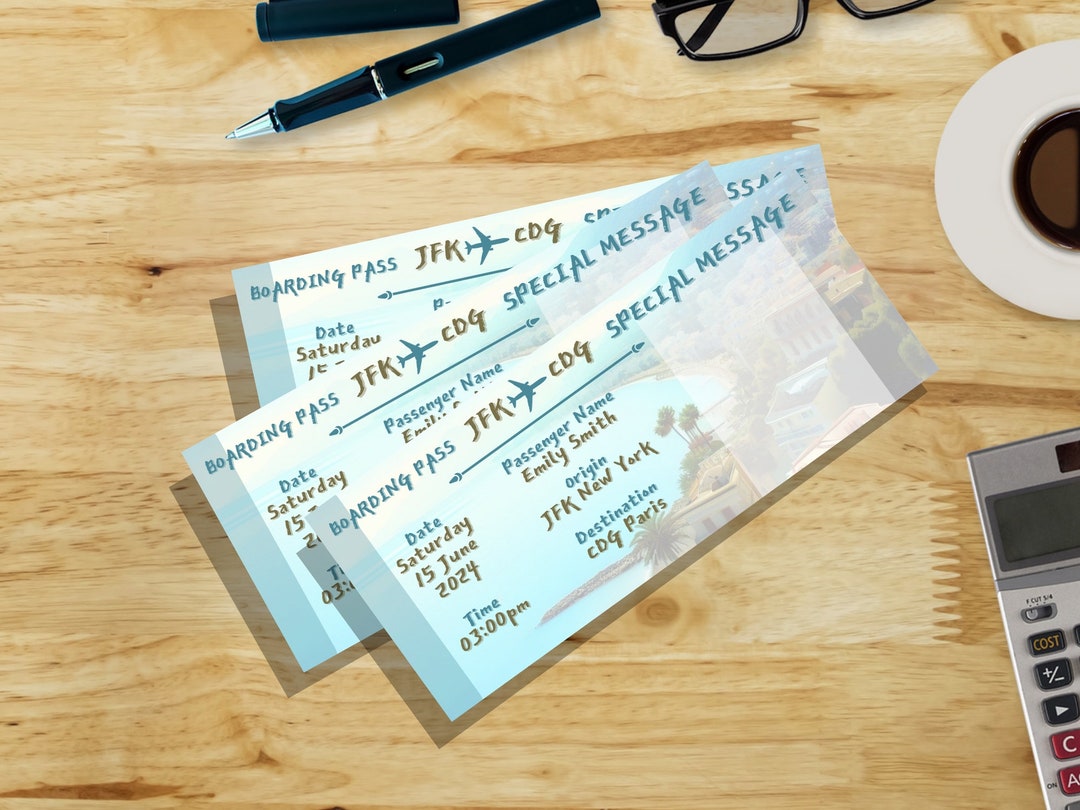 BOARDING PASS JFK CDG
SSAGE
Date
15
BOARDING PASS JFK CDG SPECIAL MESSAGE
Passenger Name
Date
Saturday
15
BOARDING PASS JFK CDG SPECIAL MESSAGE
Passenger Name
Emily Smith
Origin
JFK New York
Destination
CDG Paris
Date
Saturday
15 June
2024
Time
03:00pm
F CUT 5/4
COST
+/−
▶
C
ON